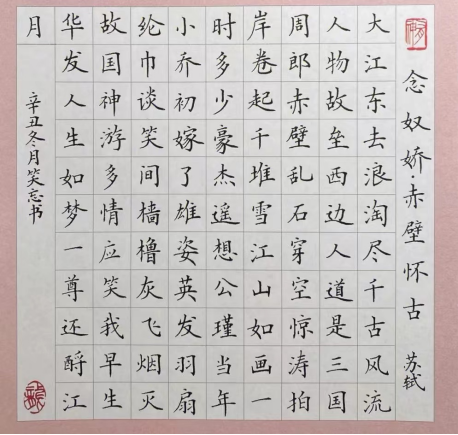 念奴娇·赤壁怀古 苏轼
大江东去浪淘尽千古风流
人物故垒西边人道是三国
周郎赤壁乱石穿空惊涛拍
岸卷起千堆雪江山如画一
时多少豪杰遥想公瑾当年
小乔初嫁了雄姿英发羽扇
纶巾谈笑间樯橹灰飞烟灭
故国神游多情应笑我早生
华发人生如梦一尊还酹江
月
辛丑冬月笑忘书